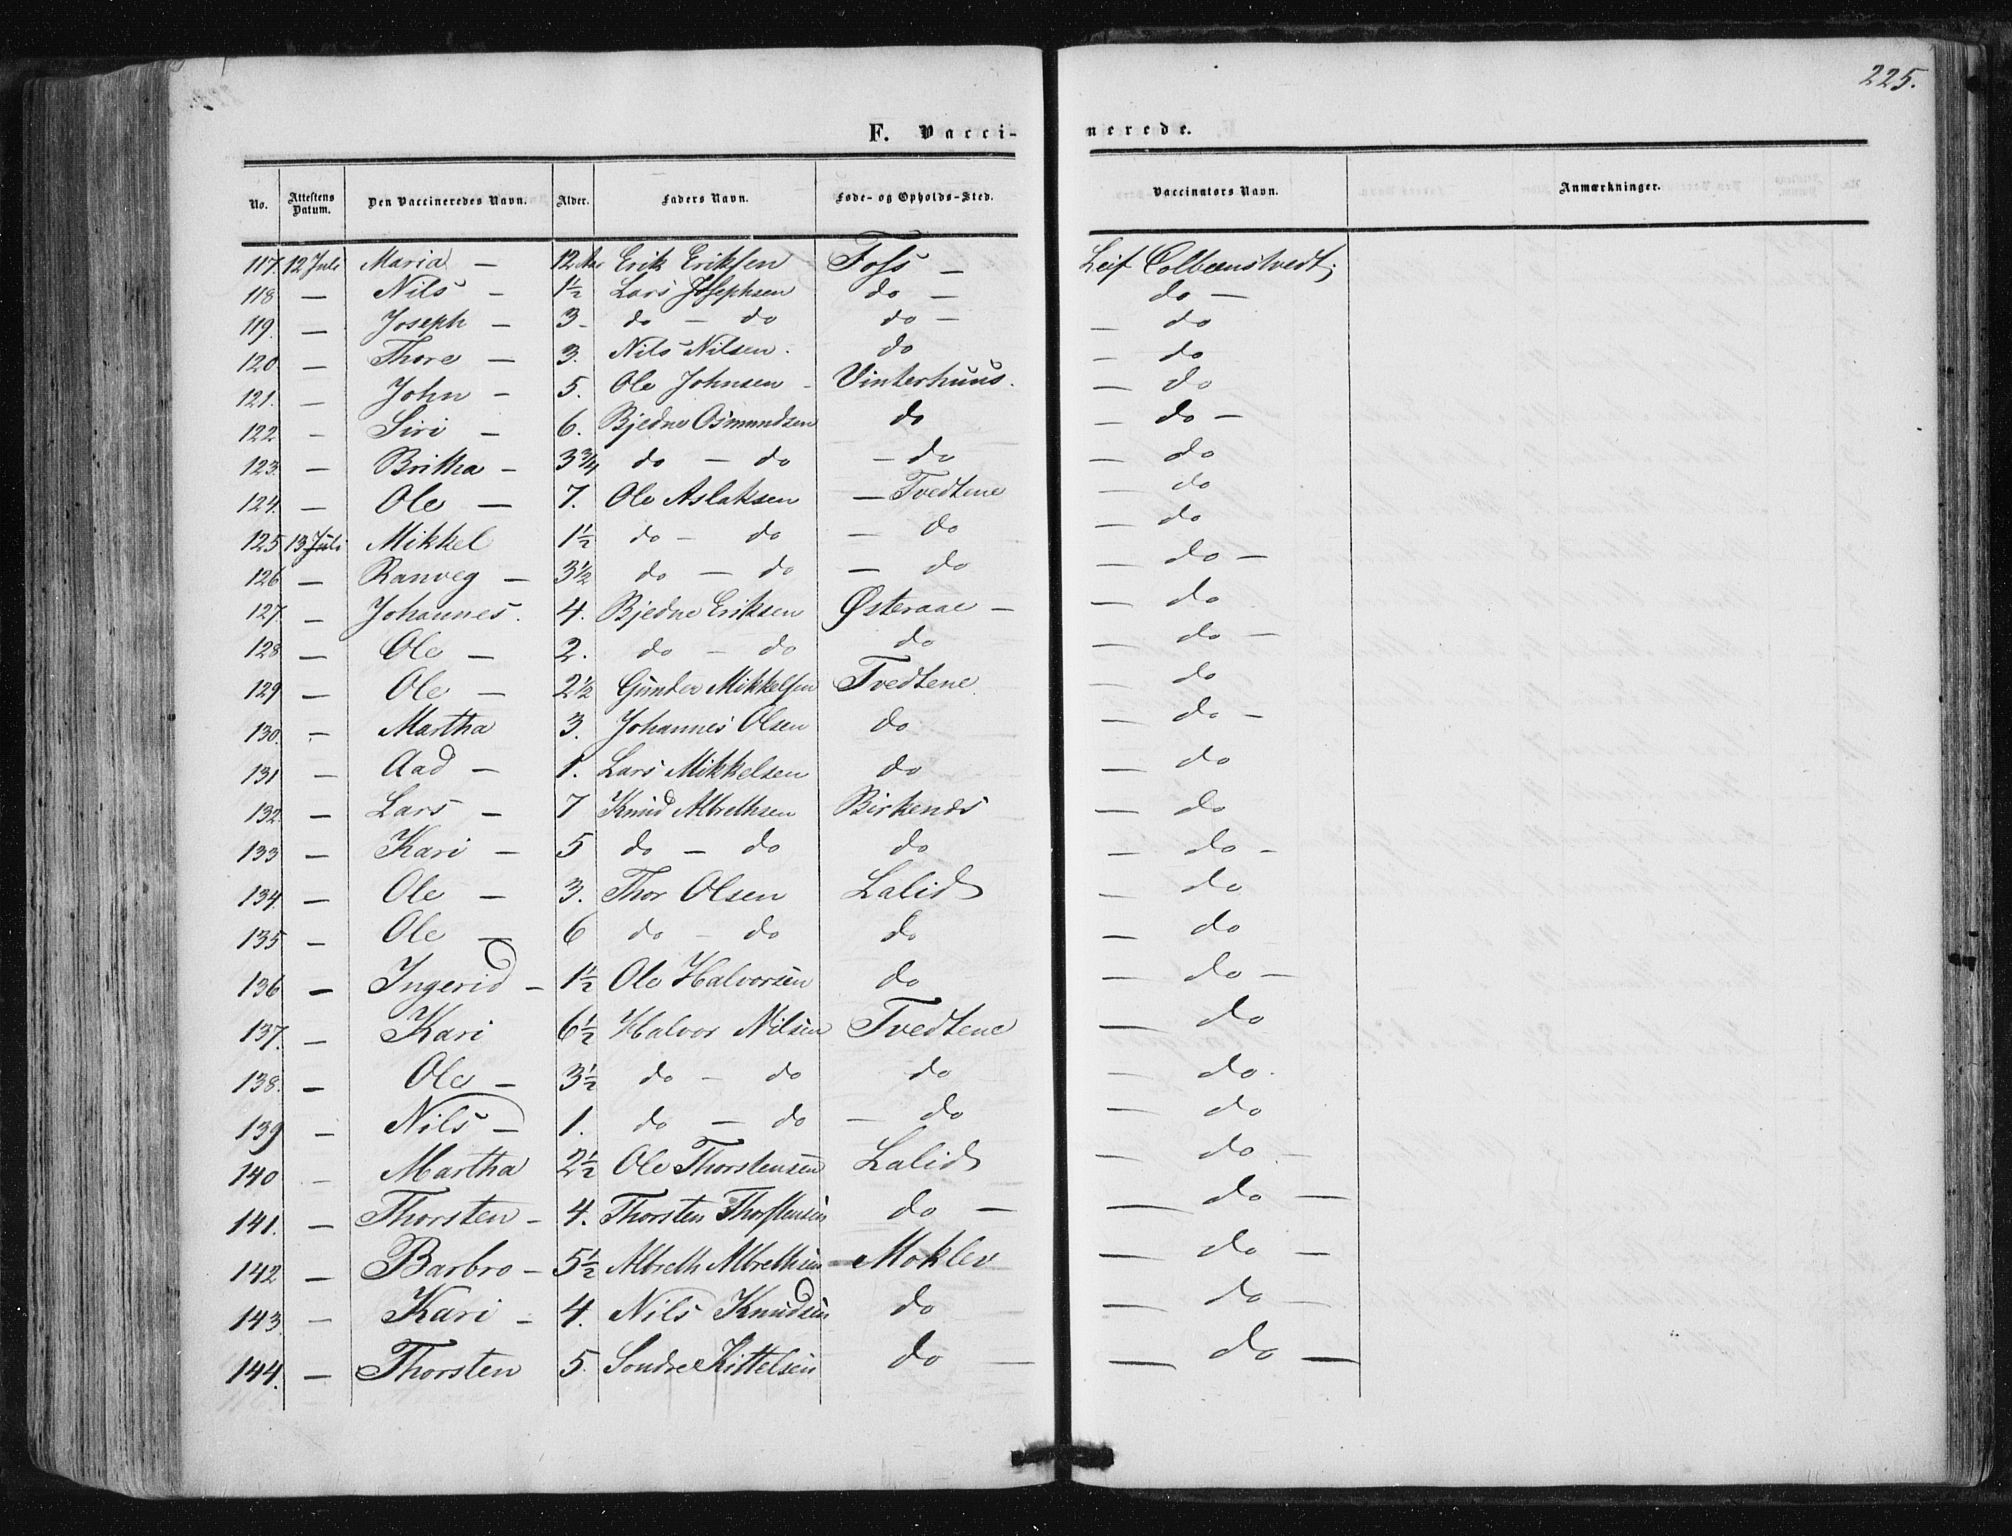 225.
F. Vacci- nerede.
No. Attestens Datum. Den Vaccineredes Navn. Alder. Faders Navn. Føde- og Opholds-Sted. Vaccinators Navn. Anmærkninger.
117. 12 Juli Maria — 12 Aar Erik Eriksen Foss — Leif
118. — Nils — 1½ Lars Josephsen do — do —
119. — Joseph — 3 - do — do do — — do
120. — Thore — 3. Nils Nilsen. do — do
121. — John — 5. Ole Johnsen - Vinterhuus. — do
122 — Siri — 6. Bjedne Osmundsen do — do —
123. — Britha - 3¾ do — do — do — do
124. — Ole — 7. Ole Aslaksen — Tvedtene — do
125 13 Juli Mikkel 1½ do — do — do — do
126 — Ranveg — 3½ do — do — do — do —
127. — Johannes. 4. Bjedne Eriksen Østeraae — — do
128 — Ole — 2. do — do do — do —
129 — Ole — 2½ Gunder Mikkelsen Tvedtene. — do
130. — Martha 3. Johannes Olsen do — do —
131 — Aad — 1. Lars Mikkelsen do — do
132. — Lars — 7 Knud Albrethsen Birkenæs — do
133 — Kari — 5 do — do do — do -
134. — Ole — 3. Thor Olsen Lalid — do
135 — Ole — 6 do — do do — do
136 — Ingerid — 1½ Ole Halvorsen do — do —
137. — Kari 6½ Halvor Nilsen Tvedtene — do
138. — Ole — 3½ do — do do — do.
139 — Nils — 1. do — do — do — do
140 — Martha 2½ Ole Thorstensen Lalid — do -
141. — Thorsten - 4. Thorsten Thorstensen do — — do —
142 — Barbro — 5½ Albreth Albrethsen Moklev — do —
143. — Kari — 4. Nils Knudsen do — do —
144. — Thorsten 5. Sondre Kittelsen do — — do —